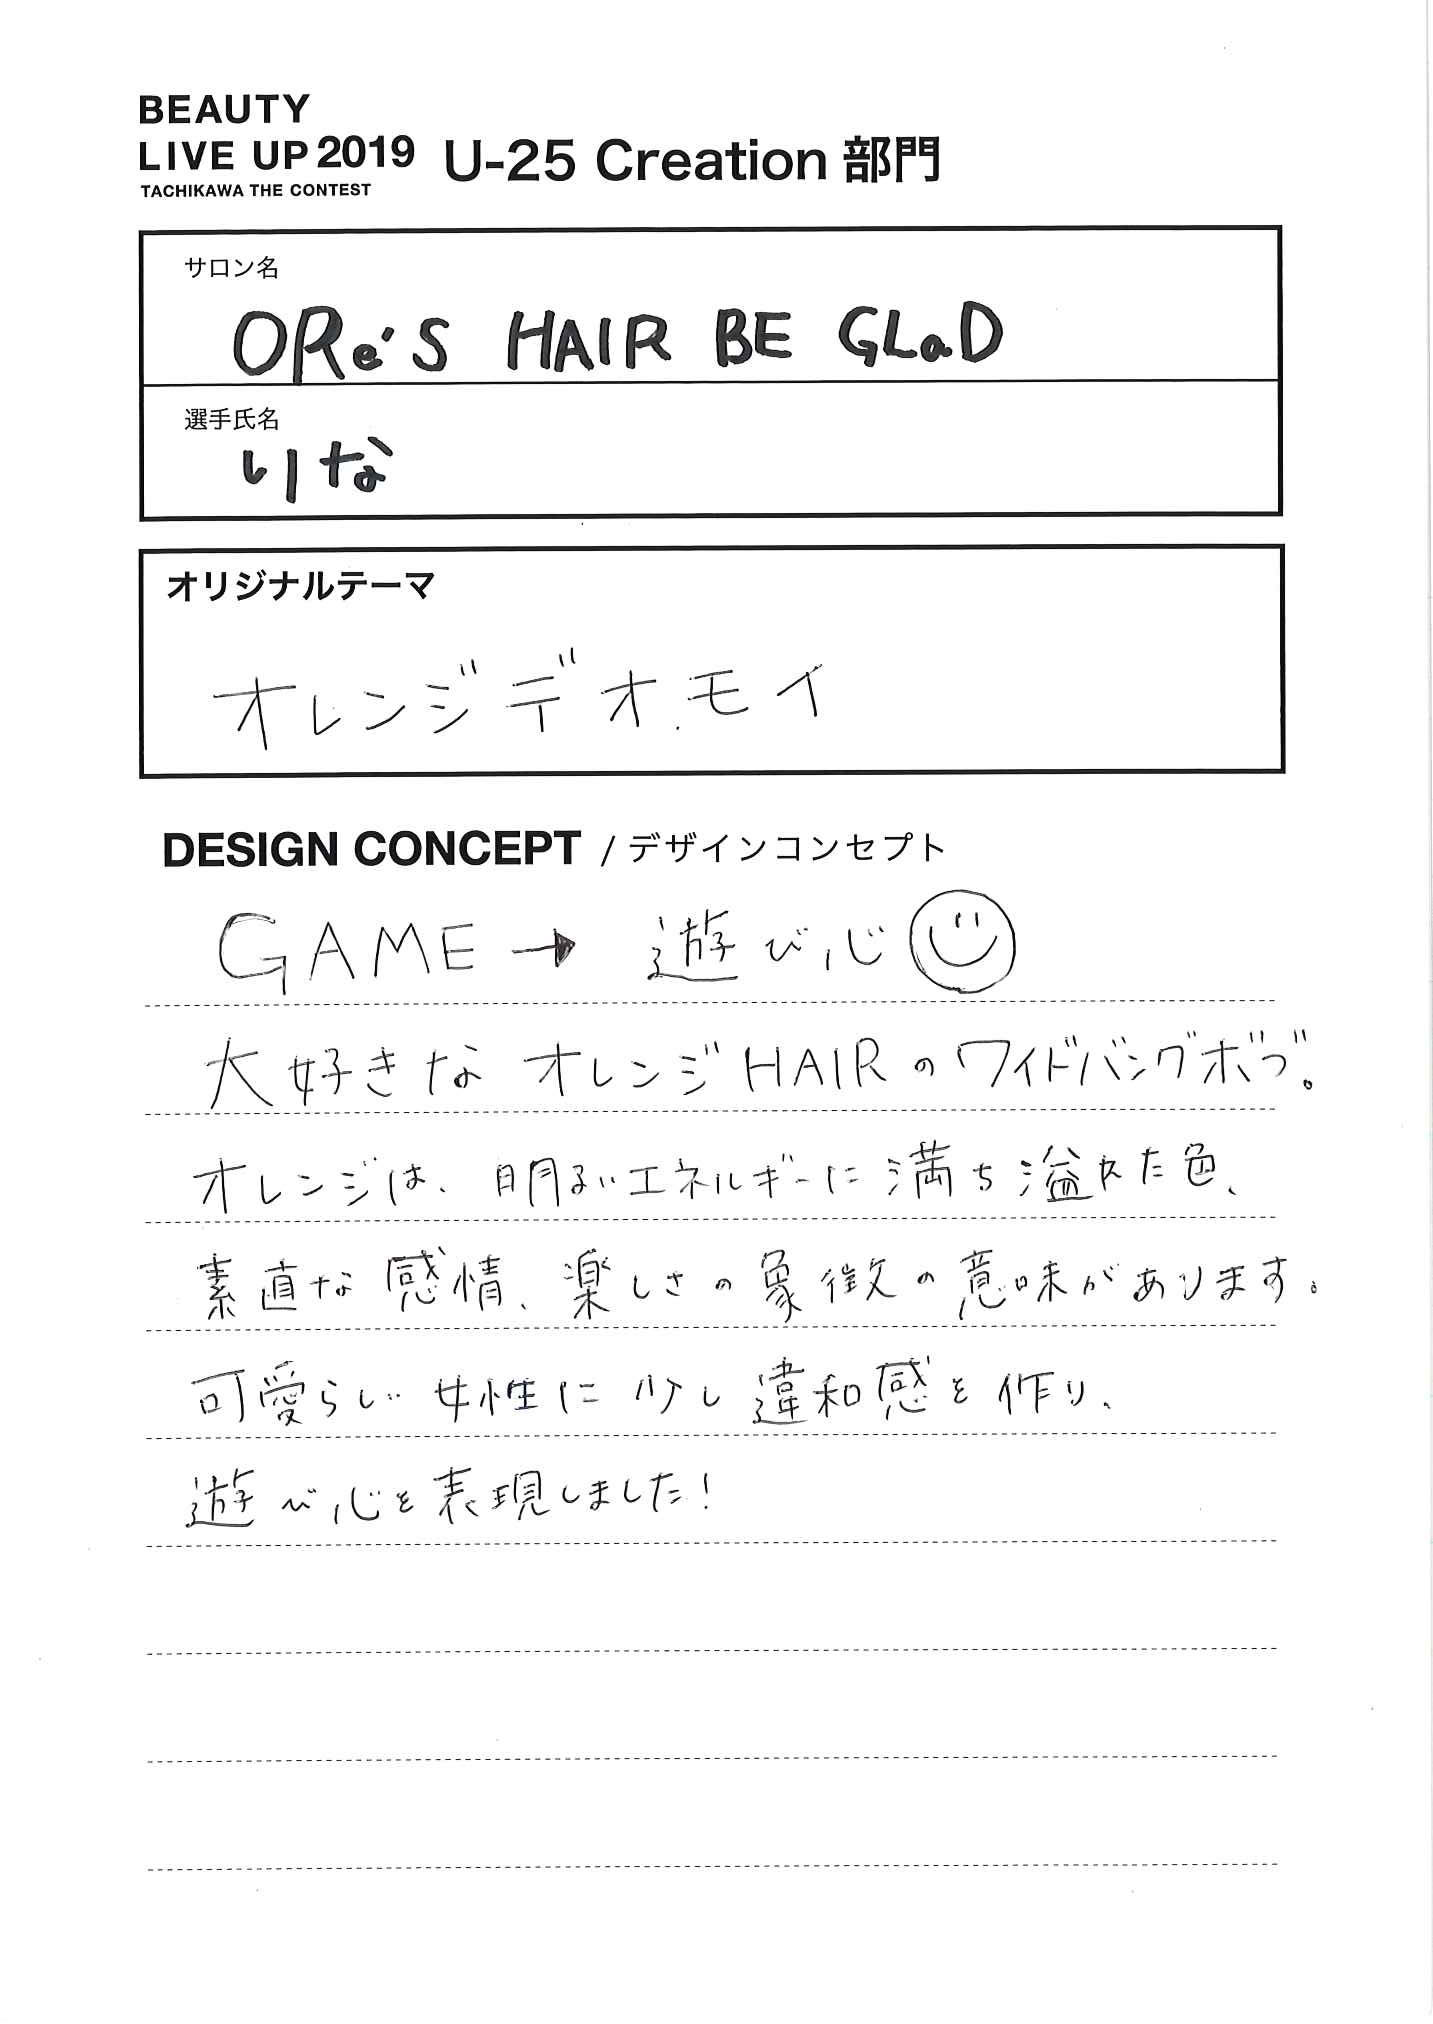 BEAUTY
LIVE UP 2019 U-25 Creation 部門
TACHIKAWA THE CONTEST
サロン名
ORe'S HAIR BE GLaD
選手氏名
りな
オリジナルテーマ
オレンジデオモイ
DESIGN CONCEPT / デザインコンセプト
GAME → 遊び心
大好きなオレンジHAIRのワイドバングボブ。
オレンジは、明るいエネルギーに満ち溢れた色、
素直な感情、楽しさの象徴の意味があります。
可愛らしい女性に少し違和感を作り、
遊び心を表現しました!